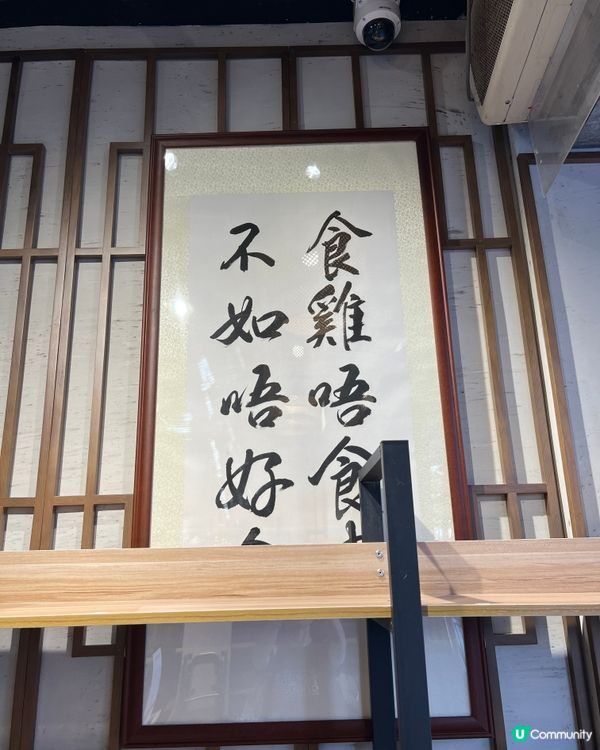 食雞唔食
不如唔好
U Community